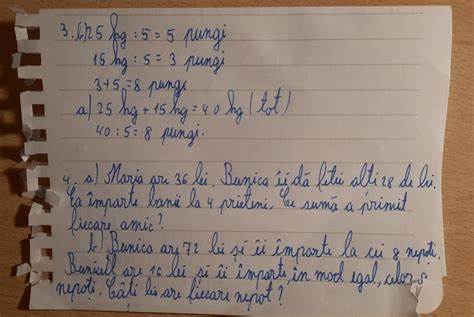 3. b) 25 kg : 5 = 5 pungi
15 kg : 5 = 3 pungi
3+5=8 pungi
a) 25 kg + 15 kg = 40 kg (tot)
40 : 5 = 8 pungi.
4. a) Maria are 36 lei. Bunica îi dă fetei alti 28 de lei.
Ea împarte banii la 4 prieteni. Ce sumă a primit
fiecare amic?
b) Bunica are 72 lei și îi împarte la cei 8 nepoți.
Bunicul are 16 lei si îi împarte, în mod egal, celor 8
nepoți. Câți lei are fiecare nepot?